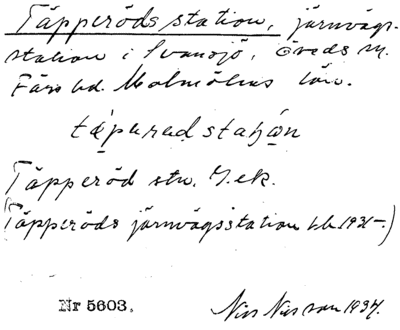 Täpperöds station, järnvägs-
station i Svansjö, Öveds sn.
Färs hd. Malmöhus län.
täpǝrødstaʃon
Täpperöd stn. G. ek.
(Täpperöds järnvägsstation hb. 1931-.)
Nr 5603. Nils Nilsson 1934.